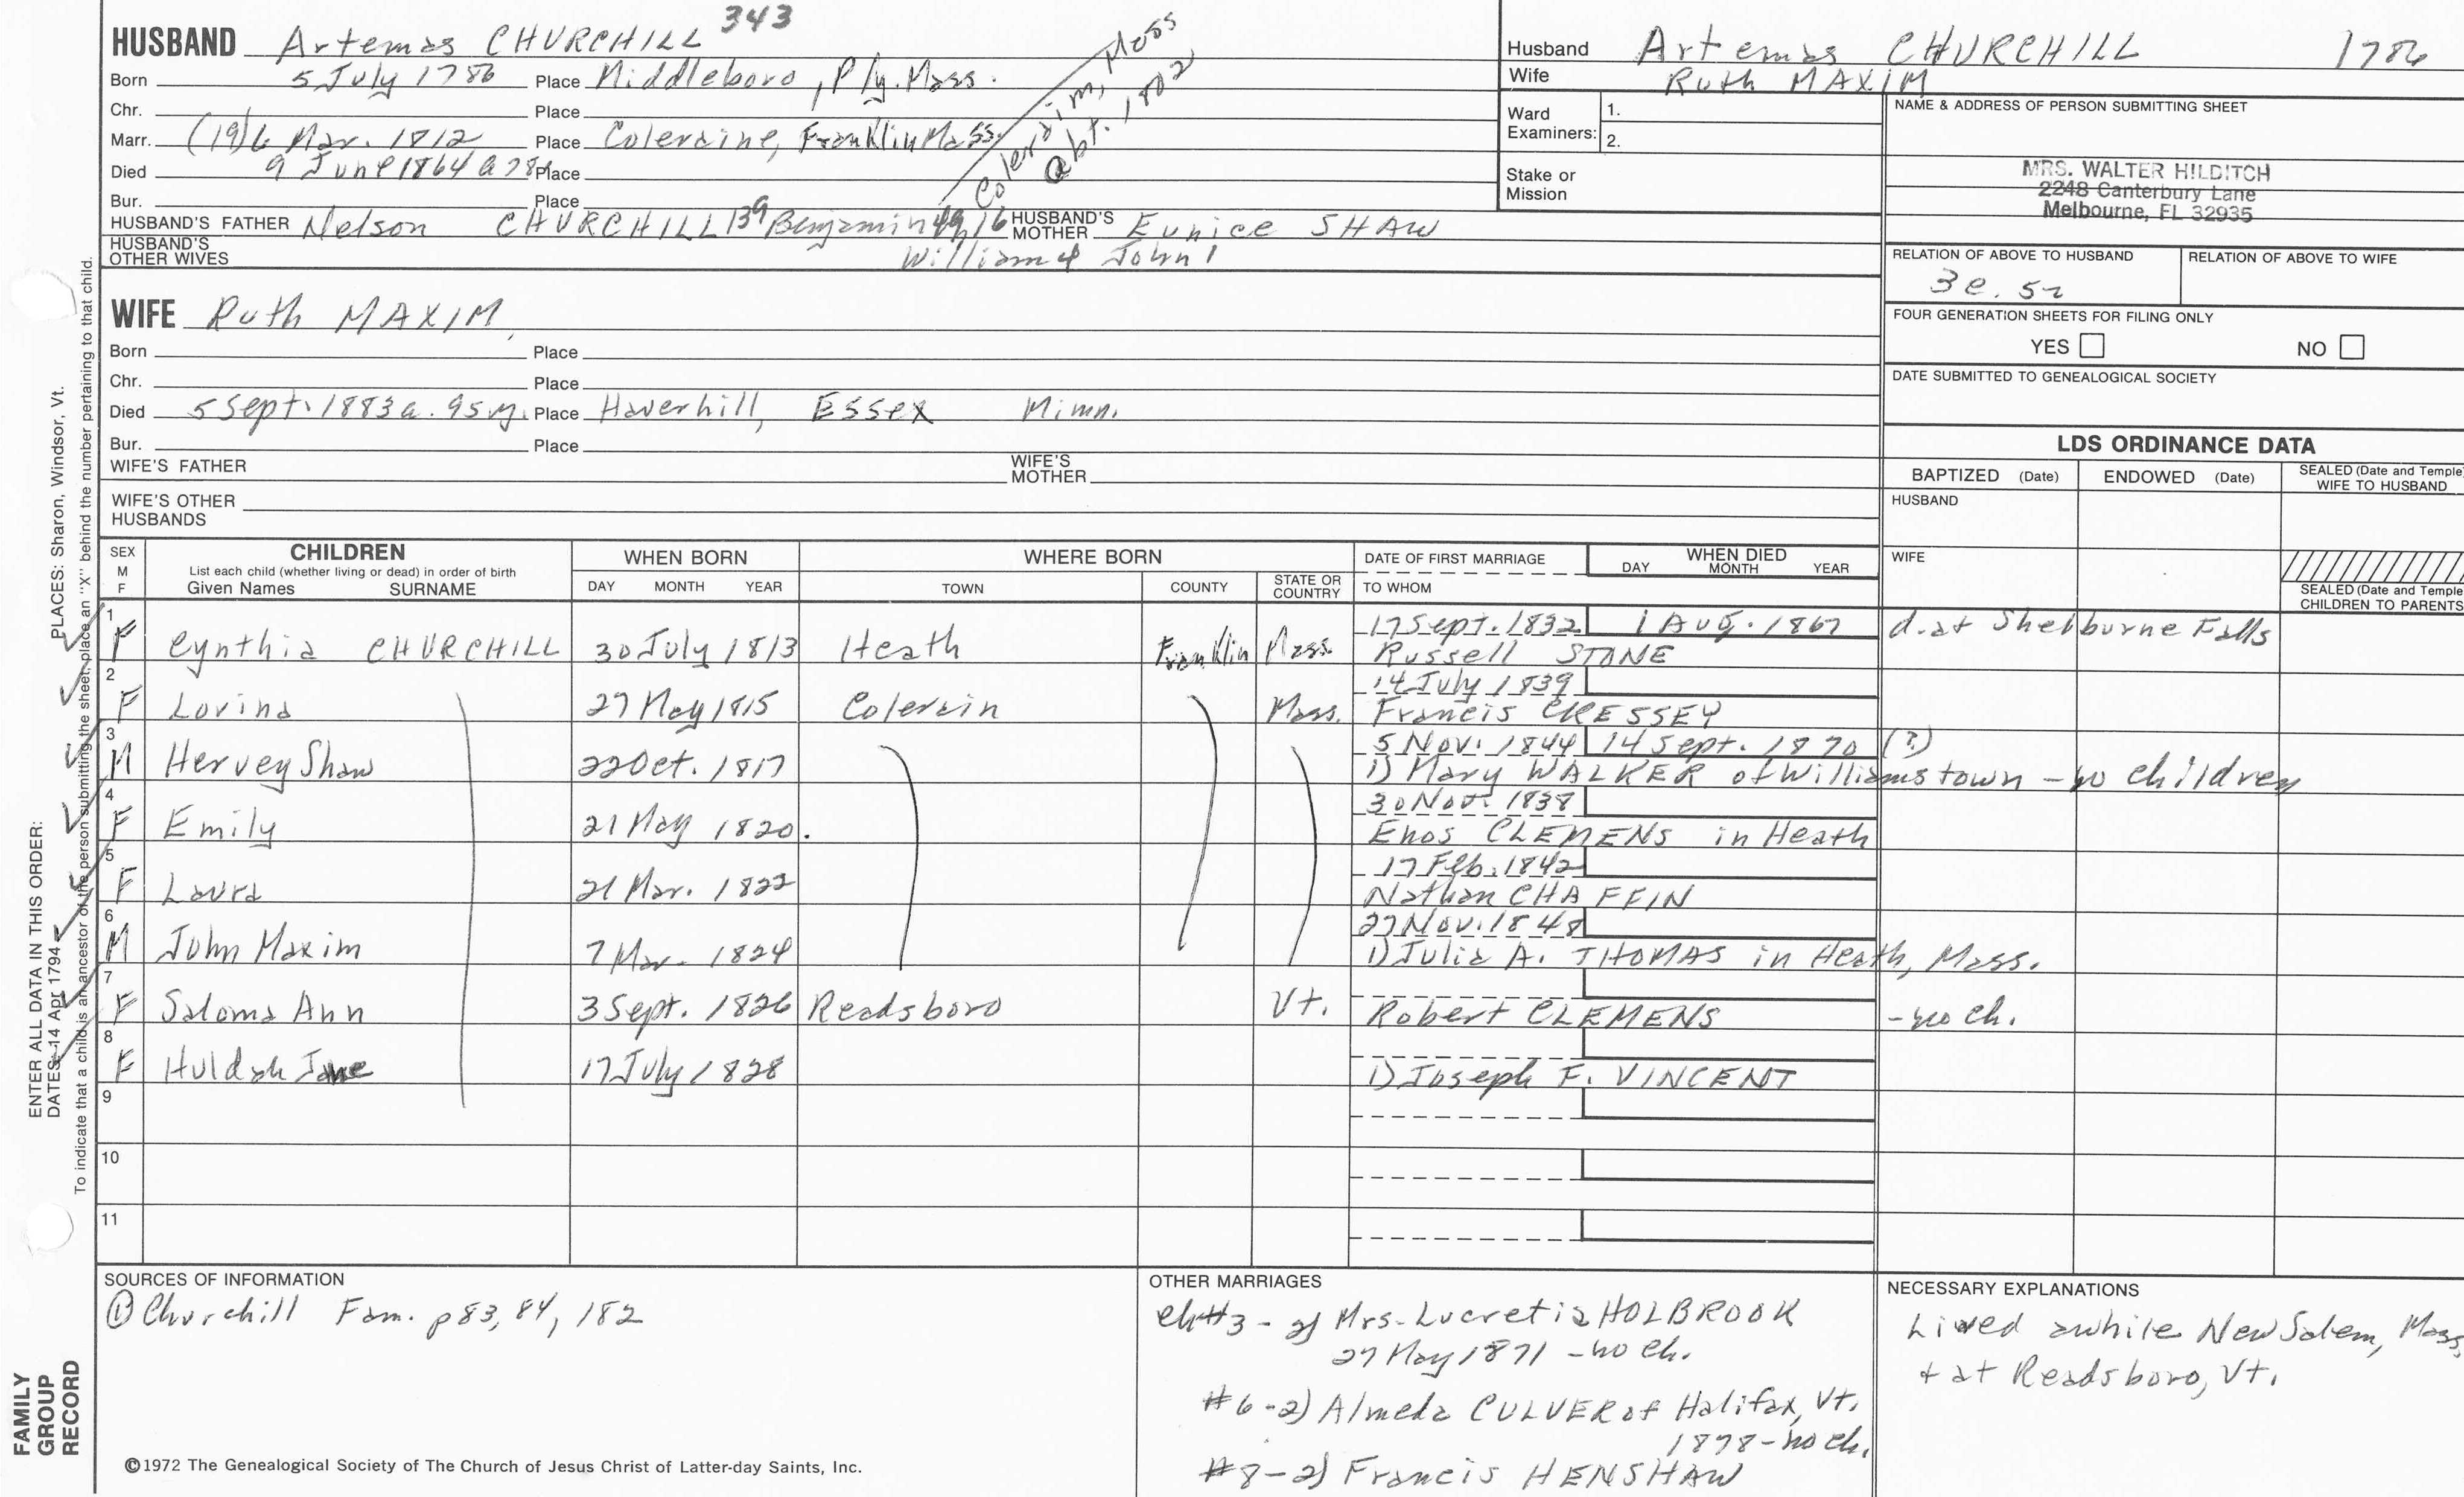 HUSBAND Artemas CHURCHILL 343
Born 5 July 1786 Place Middleboro, Ply. Mass.
Chr. Place
Marr. (19) 6 Mar. 1812 Place Coleraine, Franklin Mass.
Coleraim, Mass
abt. 1802
Died 9 June 1864 a 78 Place
Bur. Place
HUSBAND'S FATHER Nelson CHURCHILL 139 Benjamin 16 HUSBAND'S MOTHER Eunice SHAW
HUSBAND'S OTHER WIVES William 4 John 1
WIFE Ruth MAXIM
Born Place
Chr. Place
Died 5 Sept. 1883 a. 95 y. Place Haverhill, Essex Minn.
Bur. Place
WIFE'S FATHER WIFE'S MOTHER
WIFE'S OTHER HUSBANDS
Husband Artemas CHURCHILL 1786
Wife Ruth MAXIM
Ward Examiners: 1.
2.
Stake or Mission
NAME & ADDRESS OF PERSON SUBMITTING SHEET
MRS. WALTER HILDITCH
2248 Canterbury Lane
Melbourne, FL 32935
RELATION OF ABOVE TO HUSBAND RELATION OF ABOVE TO WIFE
3c. 5r
FOUR GENERATION SHEETS FOR FILING ONLY
YES NO
DATE SUBMITTED TO GENEALOGICAL SOCIETY
LDS ORDINANCE DATA
BAPTIZED (Date) ENDOWED (Date) SEALED (Date and Temple) WIFE TO HUSBAND
HUSBAND
WIFE
SEALED (Date and Temple) CHILDREN TO PARENTS
SEX M F
CHILDREN
List each child (whether living or dead) in order of birth
Given Names SURNAME
WHEN BORN
DAY MONTH YEAR
WHERE BORN
TOWN COUNTY STATE OR COUNTRY
DATE OF FIRST MARRIAGE
TO WHOM
WHEN DIED
DAY MONTH YEAR
1 F Cynthia CHURCHILL 30 July 1813 Heath Franklin Mass. 17 Sept. 1832 1 Aug. 1867 d. at Shelburne Falls
Russell STONE
2 F Lovina 27 May 1815 Colerain Mass. 14 July 1839
Francis CRESSEY
3 M Hervey Shaw 22 Oct. 1817 5 Nov. 1844 14 Sept. 1870 (?)
1) Mary WALKER of Williamstown - no children
4 F Emily 21 May 1820. 30 Nov. 1838
Enos CLEMENS in Heath
5 F Laura 21 Mar. 1822 17 Feb. 1842
Nathan CHAFFIN
6 M John Maxim 7 Mar. 1824 27 Nov. 1848
1) Julia A. THOMAS in Heath, Mass.
7 F Saloma Ann 3 Sept. 1826 Readsboro Vt. Robert CLEMENS - no ch.
8 F Huldah Jane 17 July 1828 1) Joseph F. VINCENT
9
10
11
SOURCES OF INFORMATION
① Churchill Fam. p 83, 84, 182
©1972 The Genealogical Society of The Church of Jesus Christ of Latter-day Saints, Inc.
OTHER MARRIAGES
Ch#3 - 2) Mrs. Lucretia HOLBROOK
27 May 1871 - no ch.
#6 - 2) Almeda CULVER of Halifax, Vt.
1878 - no ch.
#8 - 2) Francis HENSHAW
NECESSARY EXPLANATIONS
Lived awhile New Salem, Mass.
+ at Readsboro, Vt.
ENTER ALL DATA IN THIS ORDER:
DATES: 14 Apr 1794 PLACES: Sharon, Windsor, Vt.
To indicate that a child is an ancestor of the person submitting the sheet, place an "X" behind the number pertaining to that child.
FAMILY
GROUP
RECORD